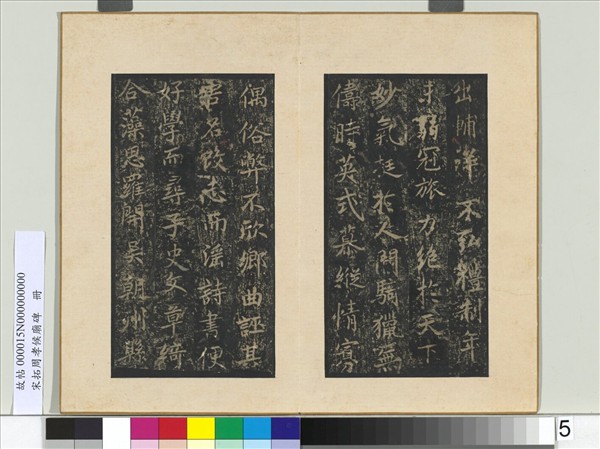 出師不弘禮制年
未弱冠旅力絕於天下
妙氣挺於人間騎獵無
儔時英式慕縱情寡
偶俗弊不欣鄉曲誣其
害名改志而淫詩書便
好學而尋子史文章綺
合藻思羅開吳朝州縣
故帖 000015N000000000
宋拓周孝侯廟碑 冊
5